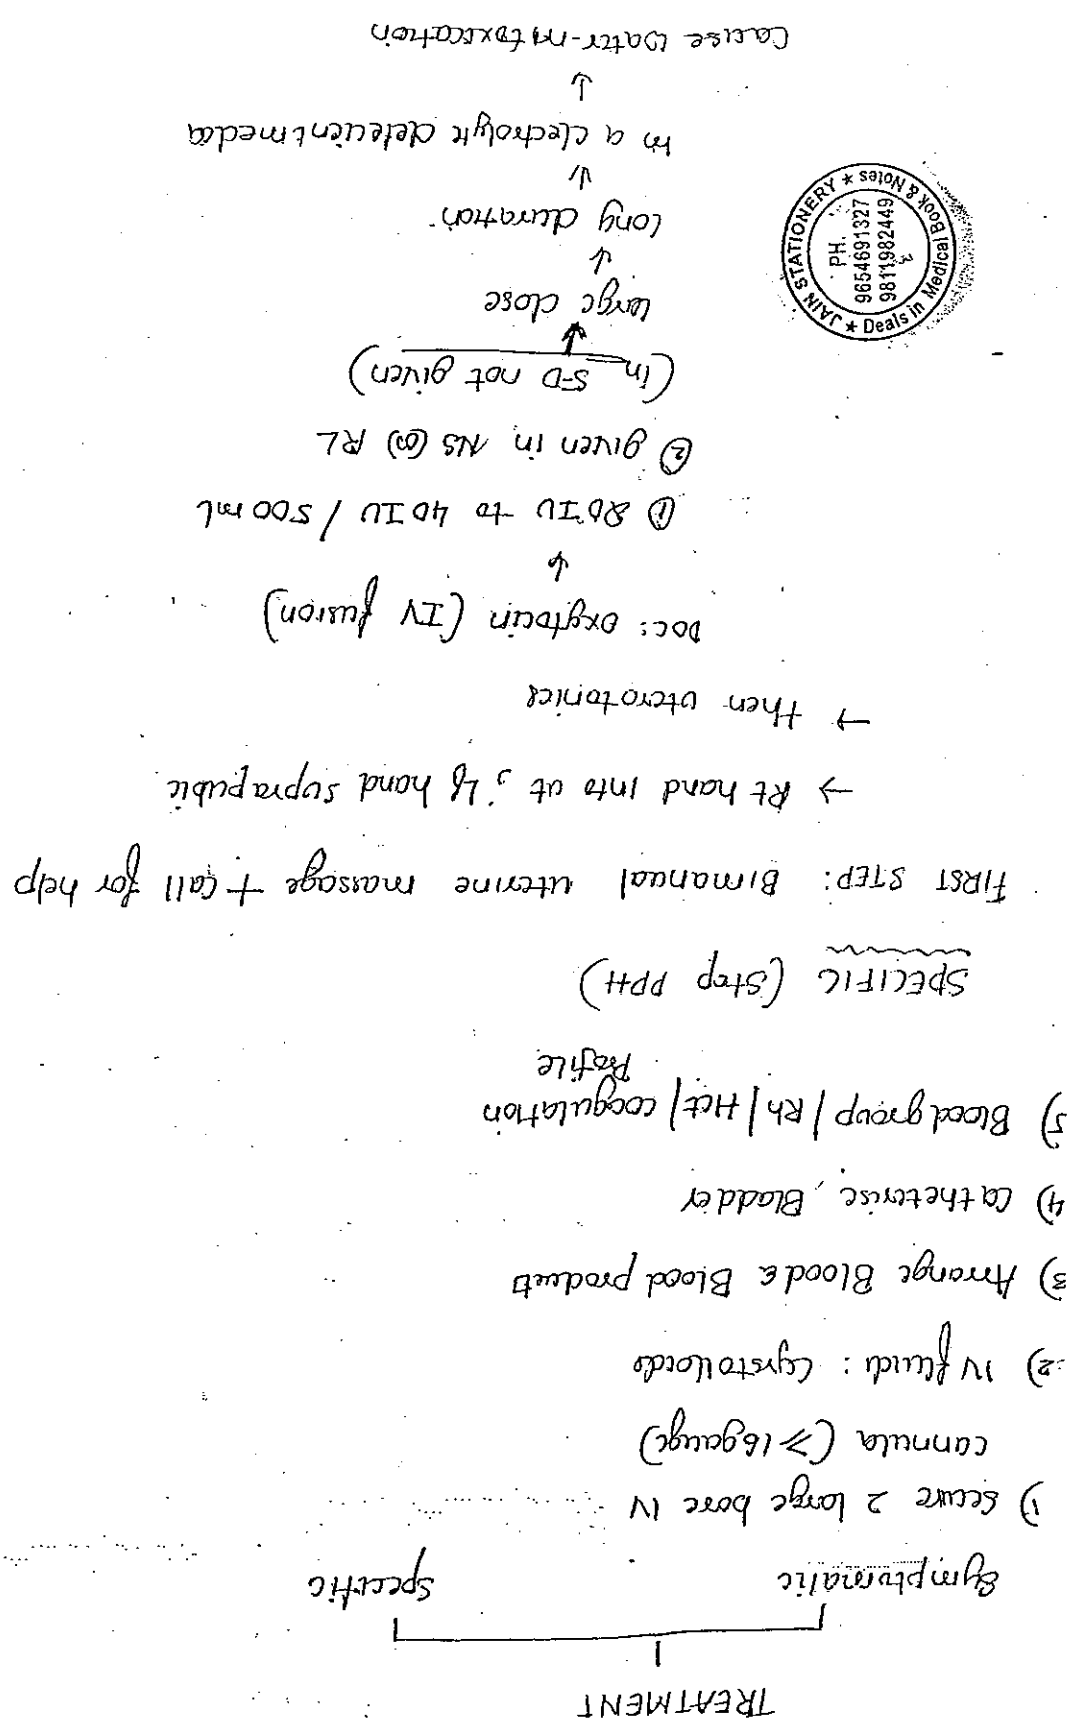 TREATMENT
Symptomatic
specific
1) secure 2 large bore IV
cannula (≥16gauge)
2) IV fluids : Cystolloids
3) Arrange Blood & Blood products
4) Catheterise, Bladder
5) Blood group / Rh / Hct / coagulation
Profile
SPECIFIC (Stop PPH)
FIRST STEP: Bimanual uterine massage + call for help
→ Rt hand into ut ; Lf hand suprapubic
→ then uterotonics
DOC: oxytocin (IV fusion)
↓
① 20 IU to 40 IU / 500 ml
② given in NS (or) RL
(in 5-D not given)
↓
large dose
↓
long duration
↓
in a electrolyte deficient media
↓
Cause water-intoxication
JAIN STATIONERY ★ Deals in Medical Book & Notes ★
PH.
9654691327
9811982449